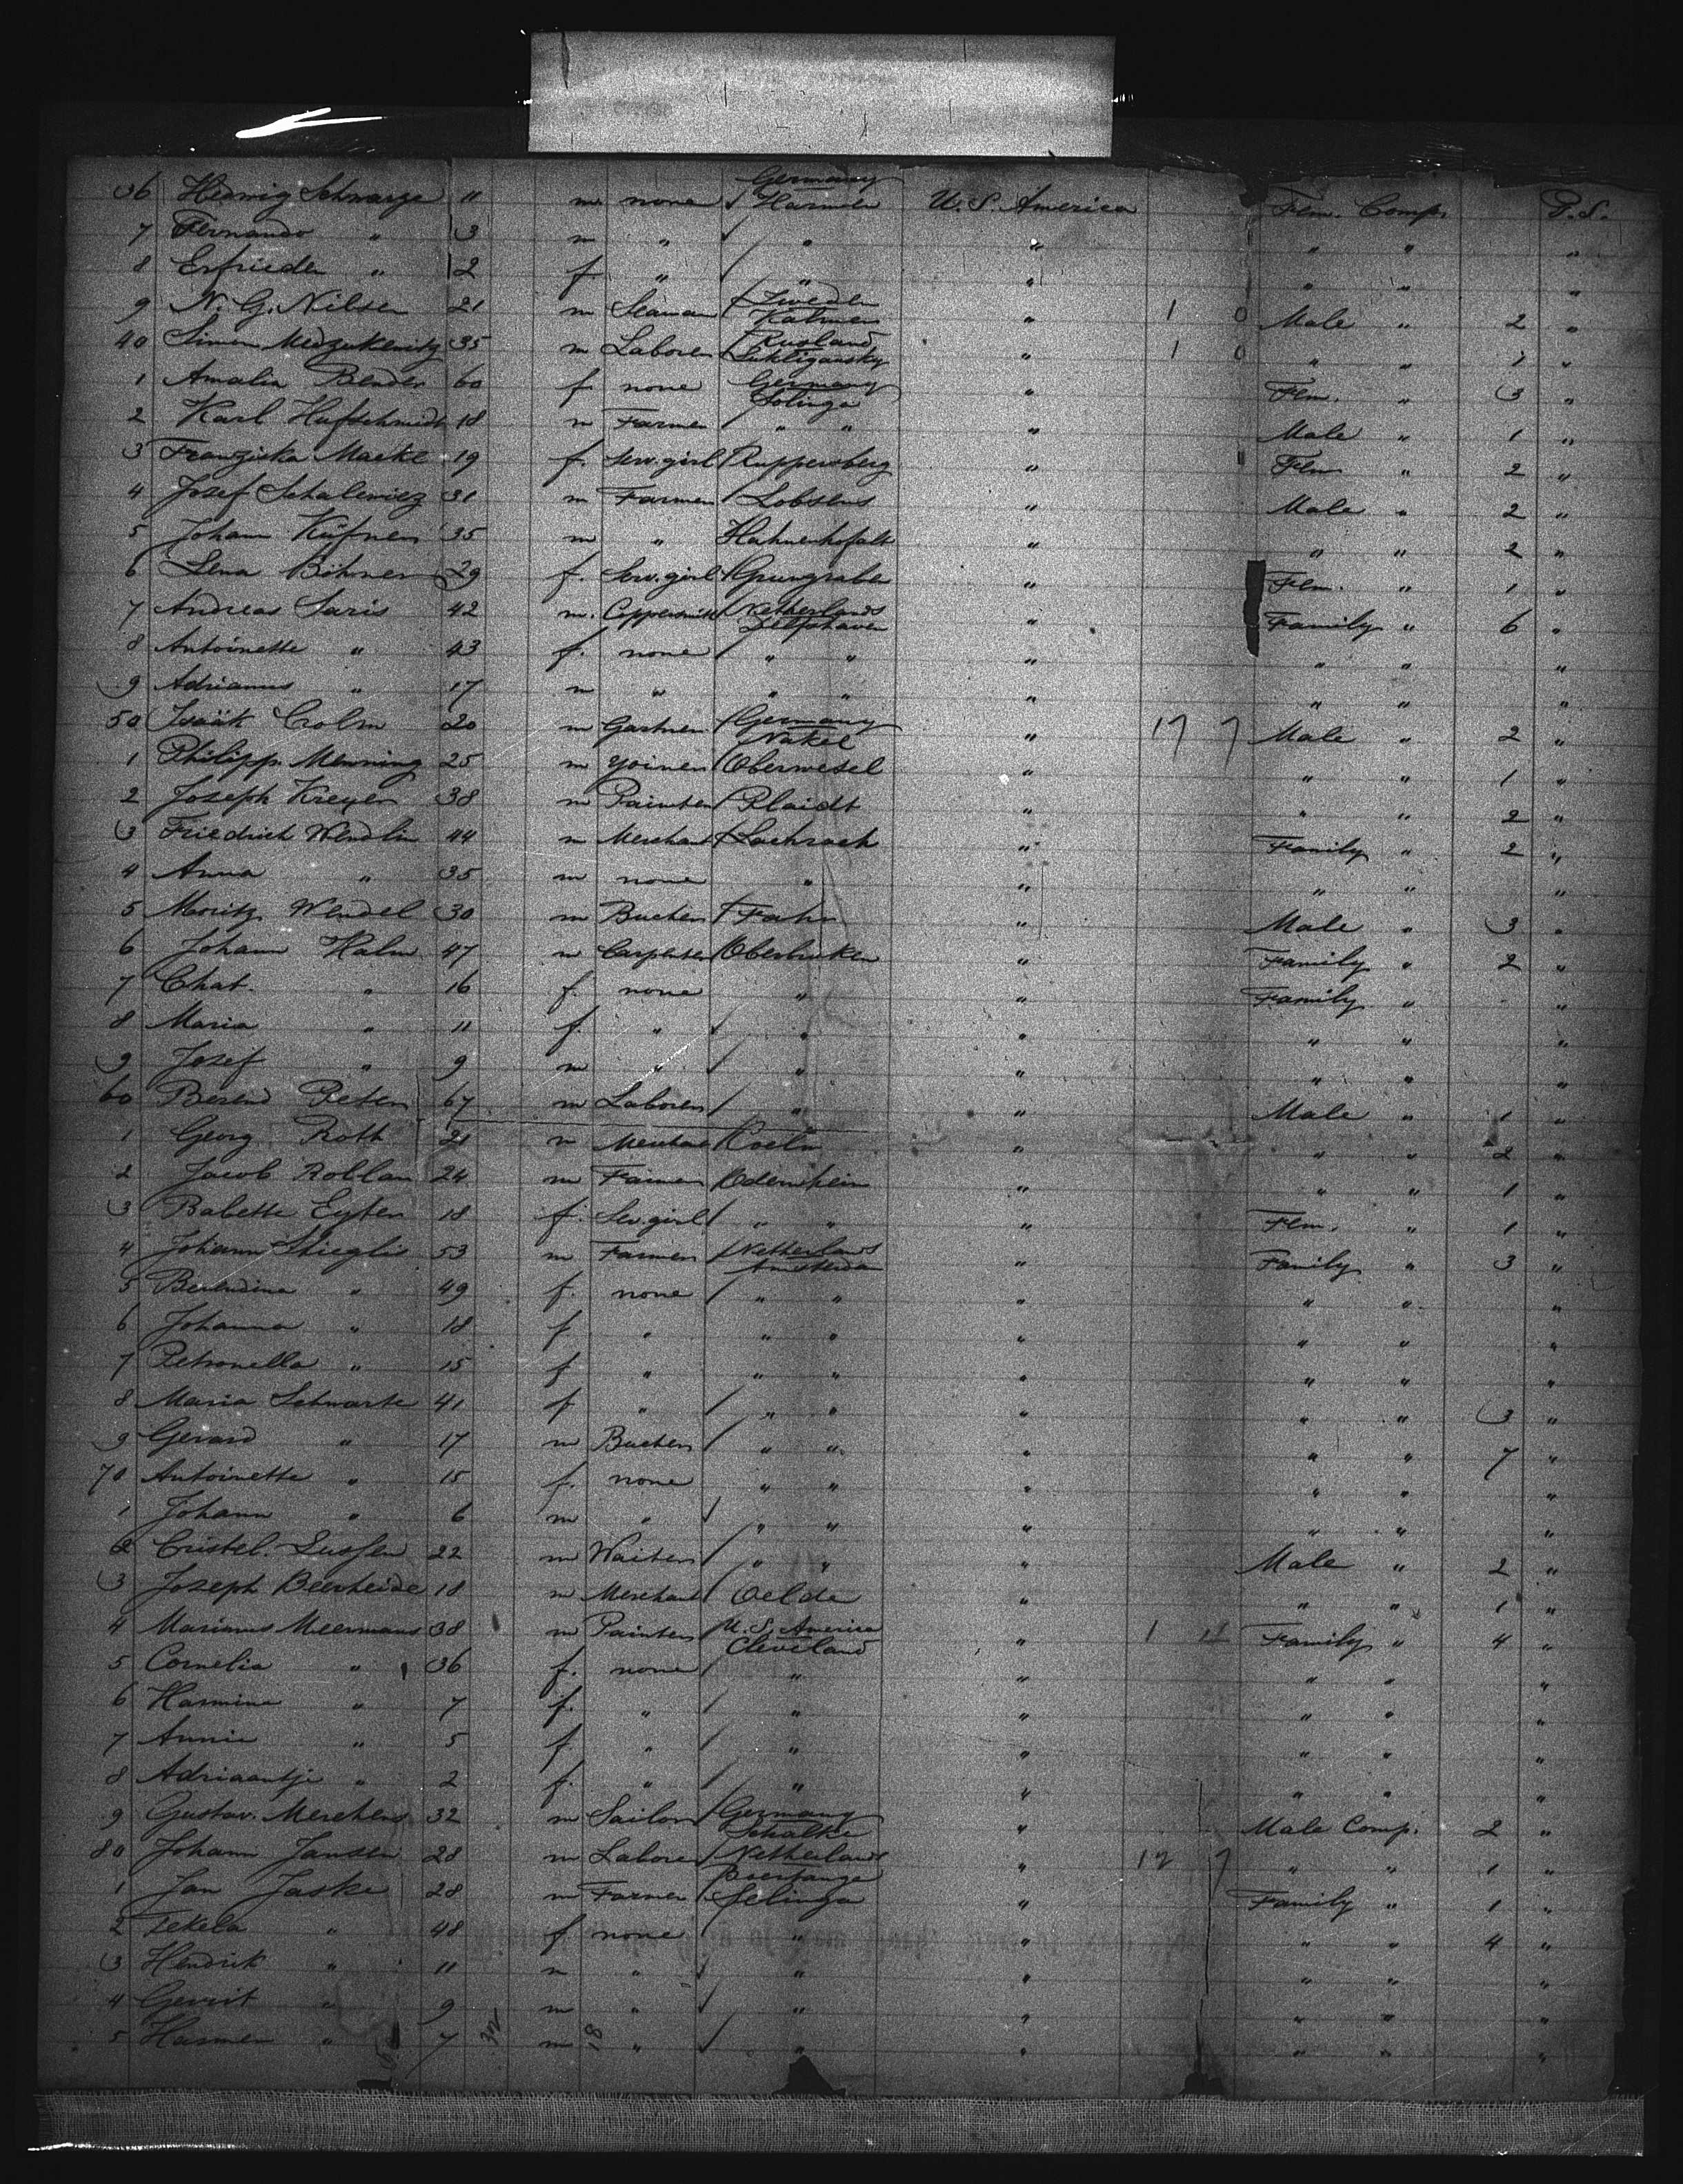 36 Hedwig Schwarze 11 m none Germany Harmen U. S. America Flm. Comp. P. S.
7 Fernando " 3 m " " " " " "
8 Erfrieden " 2 f. " " " " " "
9 N. G. Nilsen 21 m Seaman Zweden Kalmer " 1 0 Male " 2 "
40 Simon 35 m Laborer Rusland " 1 0 " " 1 "
1 Amalia Bender 60 f. none Germany Solinge " Flm. " 3 "
2 Karl Hufschmidt 18 m Farmer " " " Male " 1 "
3 Franziska Macke 19 f. Serv. girl Ruppersberg " Flm " 2 "
4 Josef Schalewicz 31 m Farmer Lobsens " Male " 2 "
5 Johann Küfner 35 m " Hahnenhofalt " " " 2 "
6 Lena Böhner 29 f. Serv. girl Grungraben " Flm. " 1 "
7 Andreas Saris 42 m. Coppersmith Netherlands Delfshaven " Family " 6 "
8 Antoinette " 43 f. none " " " " " "
9 Adrianus " 17 m " " " " " " "
50 Isaäk Crolm 20 m Gartner Germany Nakel " 17 7 Male " 2 "
1 Philipp Menning 25 m Yoiner Oberwesel " " " 1 "
2 Joseph Kreyer 38 m Painter Plaidt " " " 2 "
3 Friedrich Wendlin 44 m Merchant Lachrach " Family " 2 "
4 Anna " 35 m none " " " " "
5 Moritz Wendel 30 m Bucher Fahr " Male " 3 "
6 Johann Halm 47 m Carpenter Oberbruken " Family " 2 "
7 Chat. " 16 f. none " " Family " "
8 Maria " 11 f. " " " " " "
9 Josef " 9 m " " " " " "
60 Berend Peter 67 m Laborer " " Male " 1 "
1 Georg Roth 21 m Merchant Coeln " " " 2 "
2 Jacob Roblan 24 m Farmer Odernheim " " " 1 "
3 Babette Eyter 18 f. Serv. girl " " " Flm. " 1 "
4 Johann Stiegli 53 m Farmer Netherlands Amsterdam " Family " 3 "
5 Berendina " 49 f. none " " " " " "
6 Johanna " 18 f " " " " " " "
7 Petronella " 15 f " " " " " " "
8 Maria Schwarte 41 f " " " " " " 3 "
9 Gerard " 17 m Bucher " " " " " 7 "
70 Antoinette " 15 f. none " " " " " "
1 Johann " 6 m " " " " " " "
2 Cristel. Lussen 22 m Waiter " " " Male " 2 "
3 Joseph Beerheide 18 m Merchant Oelde " " " 1 "
4 Marianus Meermans 38 m Painter U. S. America Cleveland " 1 11 Family " 4 "
5 Cornelia " 36 f. none " " " " "
6 Harmina " 7 f. " " " " " "
7 Annie " 5 f " " " " " "
8 Adriaantje " 2 f. " " " " " "
9 Gustav. Merchens 32 m Sailor Germany Schalke " Male Comp. 2 "
80 Johann Janssen 28 m Laborer Netherlands " 12 7 " " 1 "
1 Jan Jaske 28 m Farmer Selinga " Family " 1 "
2 Tekela " 48 f none " " " " 4 "
3 Hendrik " 11 m " " " " " "
4 Gerrit " 9 m " " " " " "
5 Harmen " 7 m " " " " " "